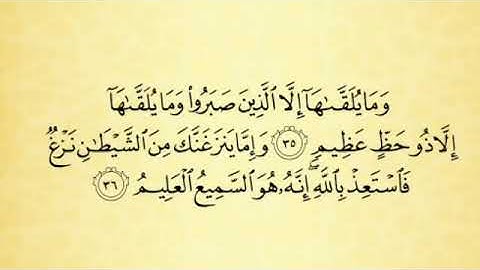 وَمَا يُلَقَّىٰهَآ إِلَّا ٱلَّذِينَ صَبَرُوا۟ وَمَا يُلَقَّىٰهَآ
إِلَّا ذُو حَظٍّ عَظِيمٍ ٣٥ وَإِمَّا يَنزَغَنَّكَ مِنَ ٱلشَّيْطَٰنِ نَزْغٌ
فَٱسْتَعِذْ بِٱللَّهِ ۖ إِنَّهُۥ هُوَ ٱلسَّمِيعُ ٱلْعَلِيمُ ٣٦